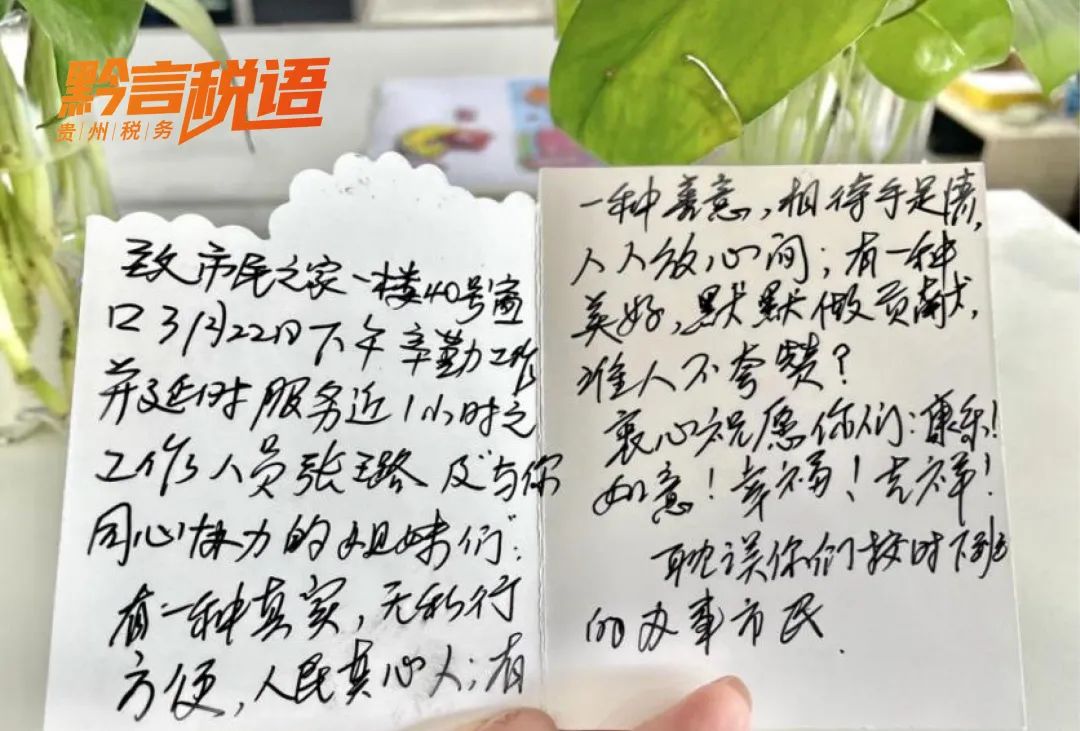 黔言税语
贵州税务
致市民之家一楼40号窗
口3月22日下午辛勤工作
并延时服务近1小时之
工作人员张璐及与你
同心协力的姐妹们：
有一种真实，无私行
方便，人民真心人；有
一种善意，相待手足情，
人人放心间；有一种
美好，默默做贡献，
谁人不夸赞？
衷心祝愿你们：康乐！
如意！幸福！吉祥！
耽误你们按时下班
的办事市民